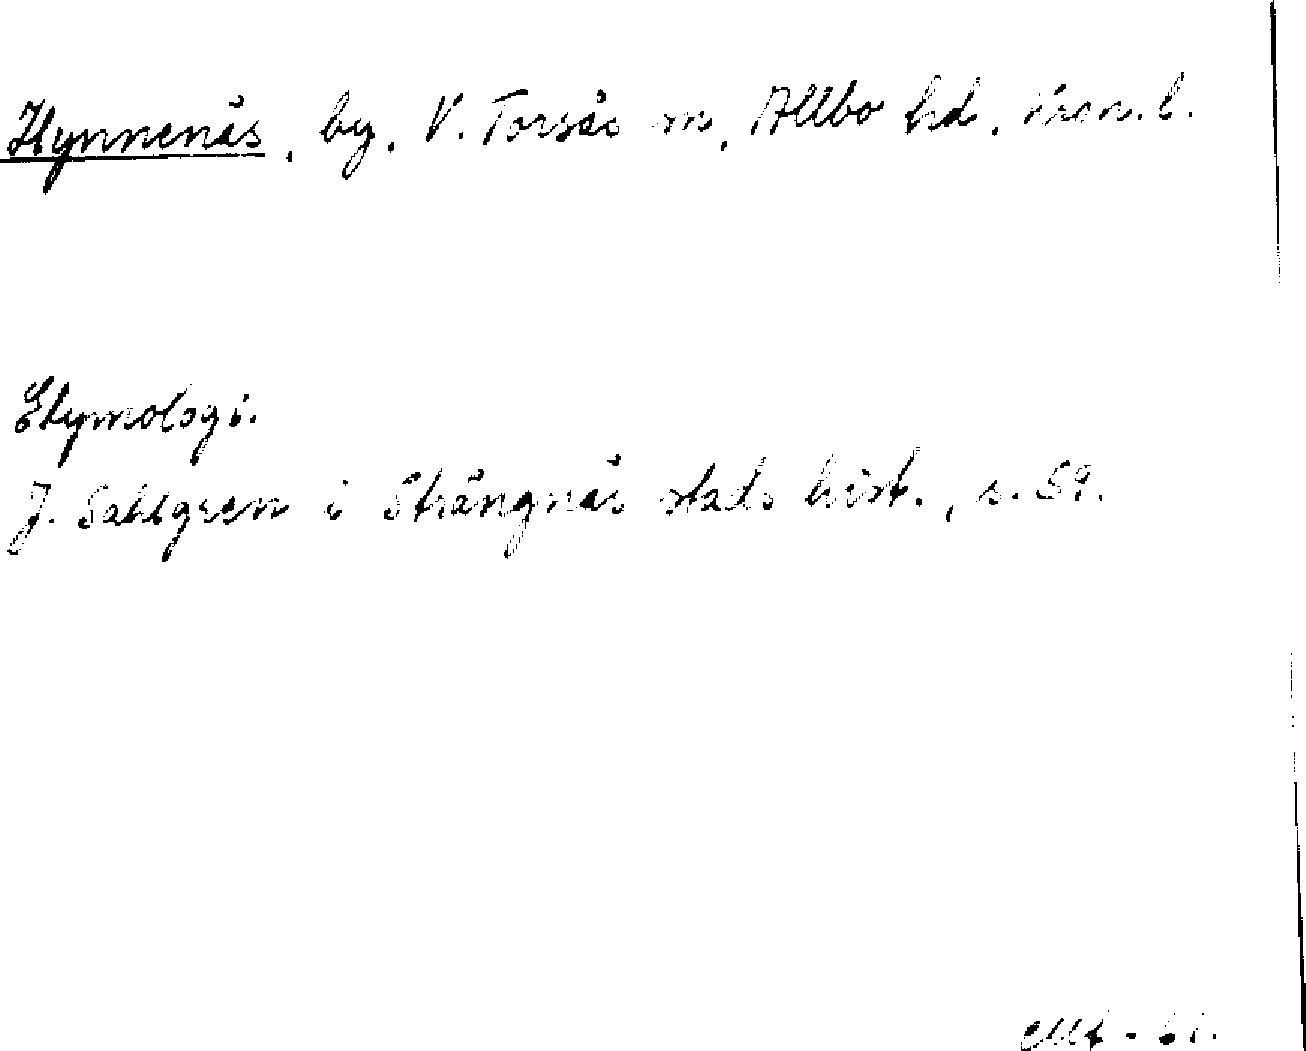 Hynnenäs, by, V. Torsås sn, Allbo hd, Kron. l.
Etymologi.
J. Sahlgren i Strängnäs stads hist., s. 59.